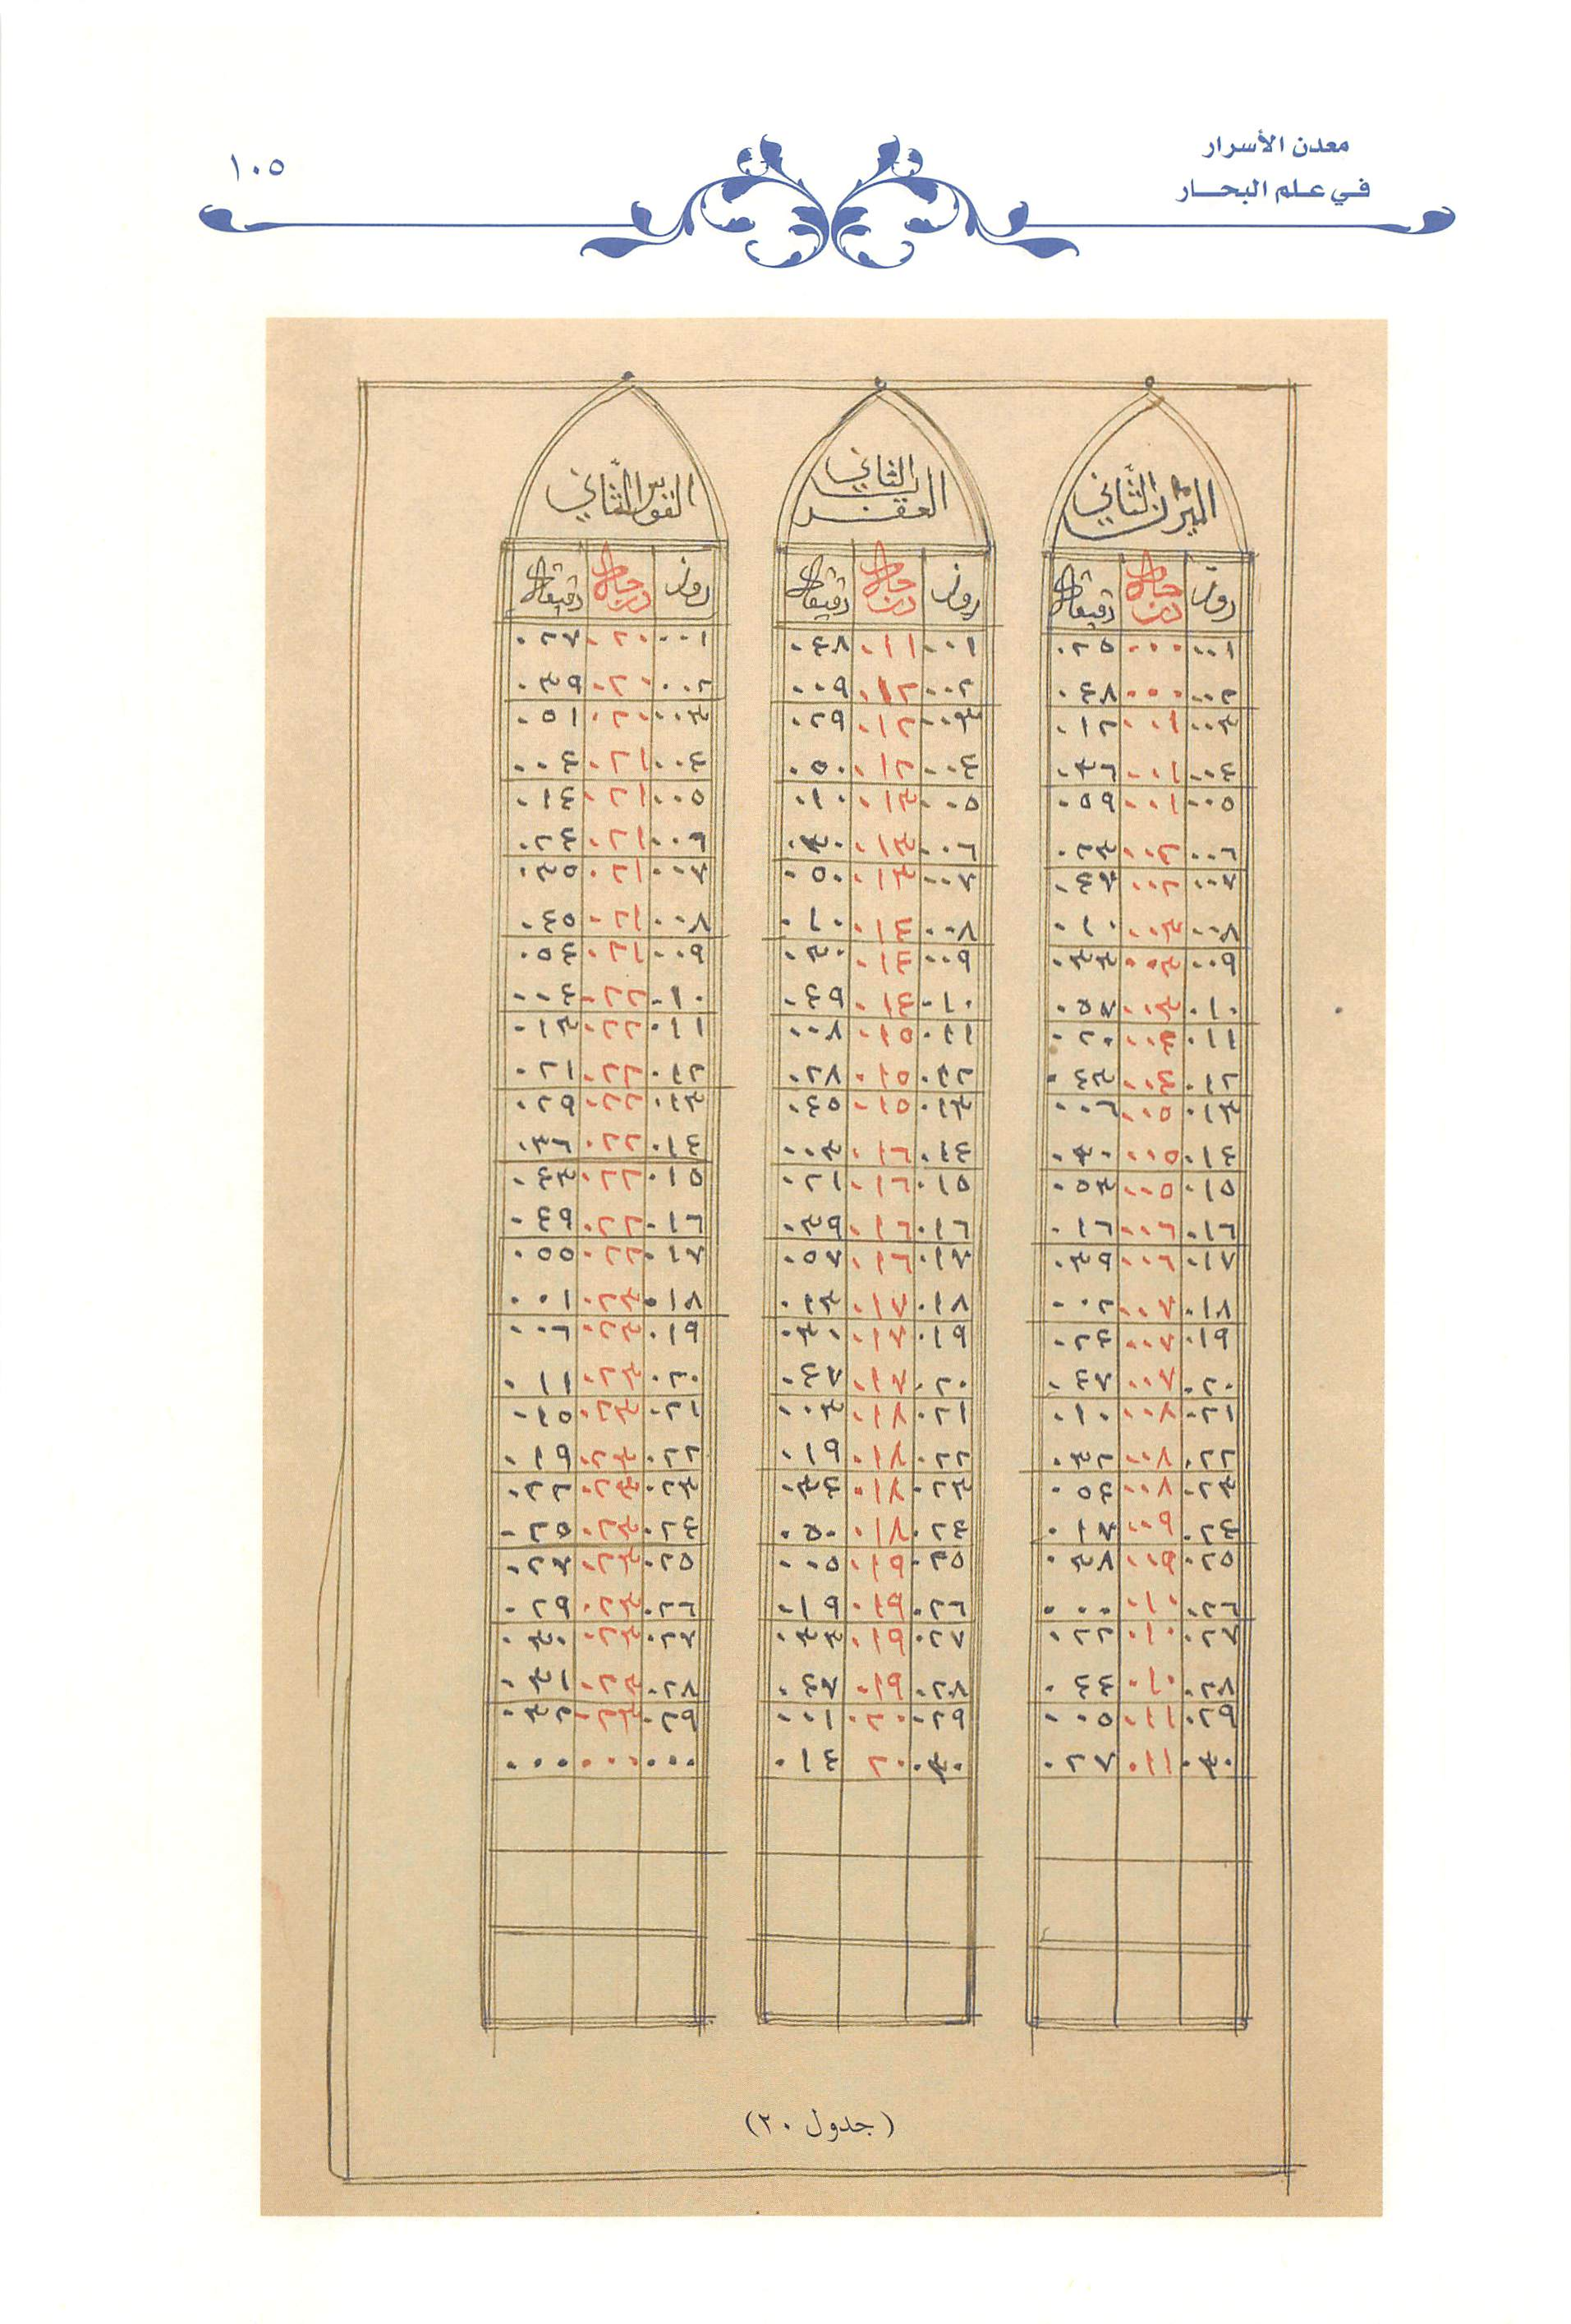 معدن الأسرار
في علم البحار
١٠٥
الميزان الثَّاني
روز درجات دقيقات
٠٠١ ٠٠٠ ٠٢٥
٠٠٢ ٠٠٠ ٠٤٨
٠٠٣ ٠٠١ ٠١٢
٠٠٤ ٠٠١ ٠٣٦
٠٠٥ ٠٠١ ٠٥٩
٠٠٦ ٠٠٢ ٠٢٣
٠٠٧ ٠٠٢ ٠٤٧
٠٠٨ ٠٠٣ ٠١٠
٠٠٩ ٠٠٣ ٠٣٣
٠١٠ ٠٠٣ ٠٥٧
٠١١ ٠٠٤ ٠٢٠
٠١٢ ٠٠٤ ٠٤٣
٠١٣ ٠٠٥ ٠٠٦
٠١٤ ٠٠٥ ٠٣٠
٠١٥ ٠٠٥ ٠٥٣
٠١٦ ٠٠٦ ٠١٦
٠١٧ ٠٠٦ ٠٣٩
٠١٨ ٠٠٧ ٠٠٢
٠١٩ ٠٠٧ ٠٢٤
٠٢٠ ٠٠٧ ٠٤٧
٠٢١ ٠٠٨ ٠١٠
٠٢٢ ٠٠٨ ٠٣٢
٠٢٣ ٠٠٨ ٠٥٤
٠٢٤ ٠٠٩ ٠١٧
٠٢٥ ٠٠٩ ٠٣٨
٠٢٦ ٠١٠ ٠٠٠
٠٢٧ ٠١٠ ٠٢٢
٠٢٨ ٠١٠ ٠٤٤
٠٢٩ ٠١١ ٠٠٥
٠٣٠ ٠١١ ٠٢٧
العقرب الثاني
روز درجات دقيقات
٠٠١ ٠١١ ٠٤٨
٠٠٢ ٠١٢ ٠٠٩
٠٠٣ ٠١٢ ٠٢٩
٠٠٤ ٠١٢ ٠٥٠
٠٠٥ ٠١٣ ٠١٠
٠٠٦ ٠١٣ ٠٣٠
٠٠٧ ٠١٣ ٠٥٠
٠٠٨ ٠١٤ ٠١٠
٠٠٩ ٠١٤ ٠٣٠
٠١٠ ٠١٤ ٠٤٩
٠١١ ٠١٥ ٠٠٨
٠١٢ ٠١٥ ٠٢٨
٠١٣ ٠١٥ ٠٤٥
٠١٤ ٠١٦ ٠٠٣
٠١٥ ٠١٦ ٠٢١
٠١٦ ٠١٦ ٠٣٩
٠١٧ ٠١٦ ٠٥٧
٠١٨ ٠١٧ ٠١٣
٠١٩ ٠١٧ ٠٣٠
٠٢٠ ٠١٧ ٠٤٧
٠٢١ ٠١٨ ٠٠٣
٠٢٢ ٠١٨ ٠١٩
٠٢٣ ٠١٨ ٠٣٤
٠٢٤ ٠١٨ ٠٥٠
٠٢٥ ٠١٩ ٠٠٥
٠٢٦ ٠١٩ ٠١٩
٠٢٧ ٠١٩ ٠٣٣
٠٢٨ ٠١٩ ٠٤٧
٠٢٩ ٠٢٠ ٠٠١
٠٣٠ ٢٠ ٠١٤
القوس الثَّاني
روز درجات دقيقات
٠٠١ ٠٢٠ ٠٢٧
٠٠٢ ٠٢٠ ٠٣٩
٠٠٣ ٠٢٠ ٠٥١
٠٠٤ ٠٢١ ٠٠٤
٠٠٥ ٠٢١ ٠١٤
٠٠٦ ٠٢١ ٠٢٤
٠٠٧ ٠٢١ ٠٣٥
٠٠٨ ٠٢١ ٠٤٥
٠٠٩ ٠٢١ ٠٥٤
٠١٠ ٠٢٢ ٠٠٤
٠١١ ٠٢٢ ٠١٣
٠١٢ ٠٢٢ ٠٢١
٠١٣ ٠٢٢ ٠٢٩
٠١٤ ٠٢٢ ٠٣٦
٠١٥ ٠٢٢ ٠٤٣
٠١٦ ٠٢٢ ٠٤٩
٠١٧ ٠٢٢ ٠٥٥
٠١٨ ٠٢٣ ٠٠١
٠١٩ ٠٢٣ ٠٠٦
٠٢٠ ٠٢٣ ٠١١
٠٢١ ٠٢٣ ٠١٥
٠٢٢ ٠٢٣ ٠١٩
٠٢٣ ٠٢٣ ٠٢٢
٠٢٤ ٠٢٣ ٠٢٥
٠٢٥ ٠٢٣ ٠٢٧
٠٢٦ ٠٢٣ ٠٢٩
٠٢٧ ٠٢٣ ٠٣٠
٠٢٨ ٠٢٣ ٠٣١
٠٢٩ ٠٢٣ ٠٣٢
٠٠٠ ٠٠٠ ٠٠٠
(جدول ٢٠)